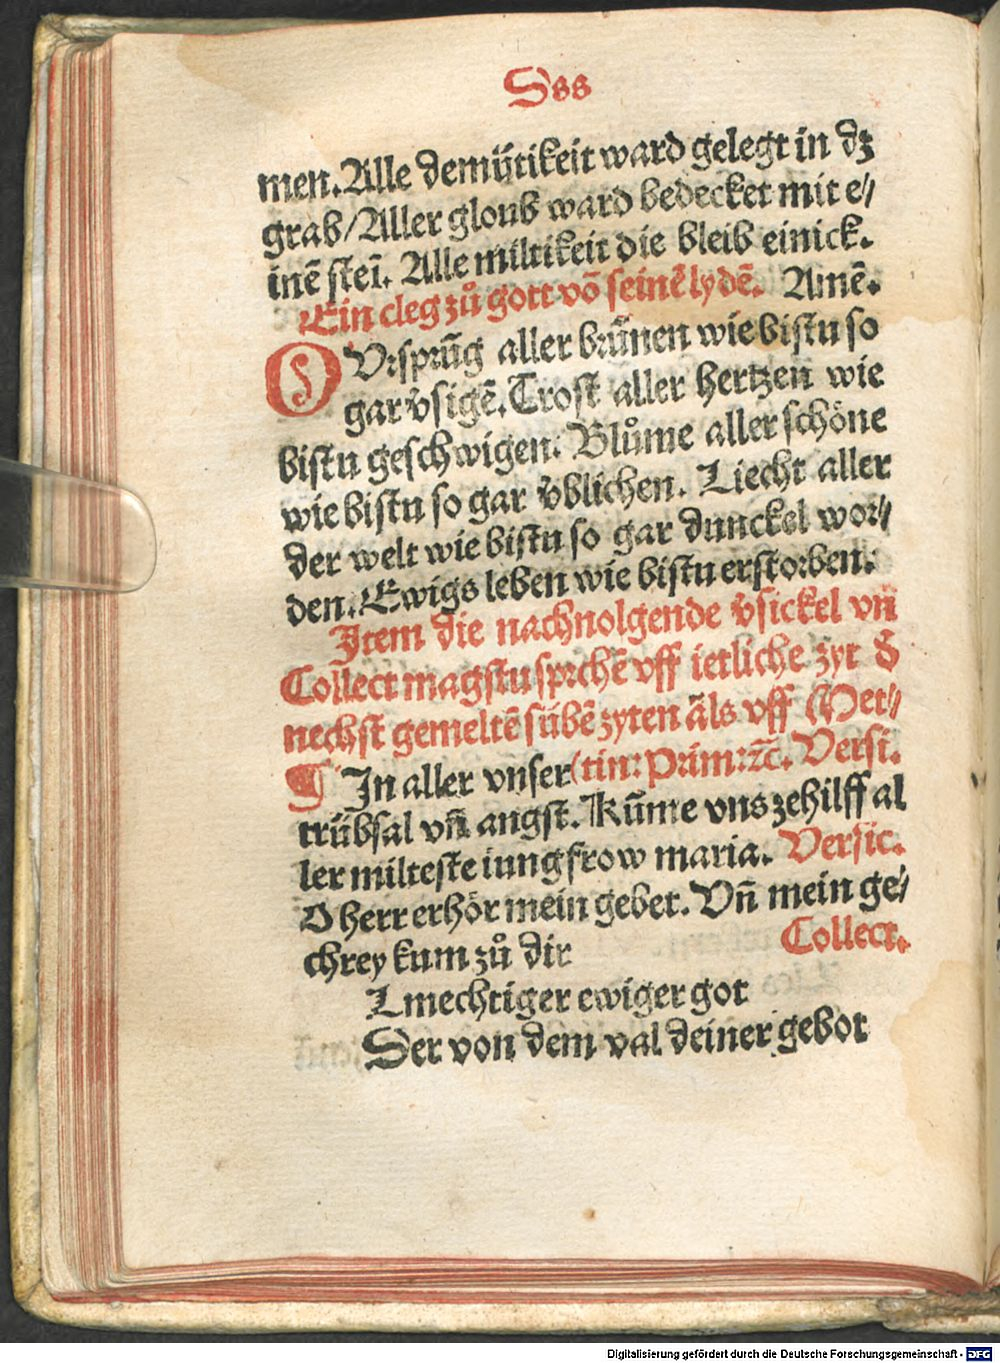 Sss
men. Alle demütikeit ward gelegt in dz
grab/ Aller gloub ward bedecket mit e⸗
inē stei. Alle miltikeit die bleib einick.
Ein cleg zů gott vō seinē lydē. Amē.
O Vrsprūg aller brūnen wie bistu so
gar v̄sigē. Trost aller hertzen wie
bistu geschwigen. Blůme aller schöne
wie bistu so gar v̄blichen. Liecht aller
der welt wie bistu so gar dunckel wor⸗
den. Ewigs leben wie bistu erstorben.
Item die nachnolgende v̄sickel vn̄
Collect magstu sprchē vff ietliche zyt d̄
nechst gemeltē sübē zyten āls vff (Met⸗
¶ In aller vnser (tin: Prim: ꝛc̄. Versi.
trübsal vn̄ angst. Kūme vns zehilff al
ler milteste iungfrow maria. Versic.
O herr erhör mein gebet. Vn̄ mein ge⸗
chrey kum zů dir Collect.
Lmechtiger ewiger got
Der von dem val deiner gebot
Digitalisierung gefördert durch die Deutsche Forschungsgemeinschaft - DFG